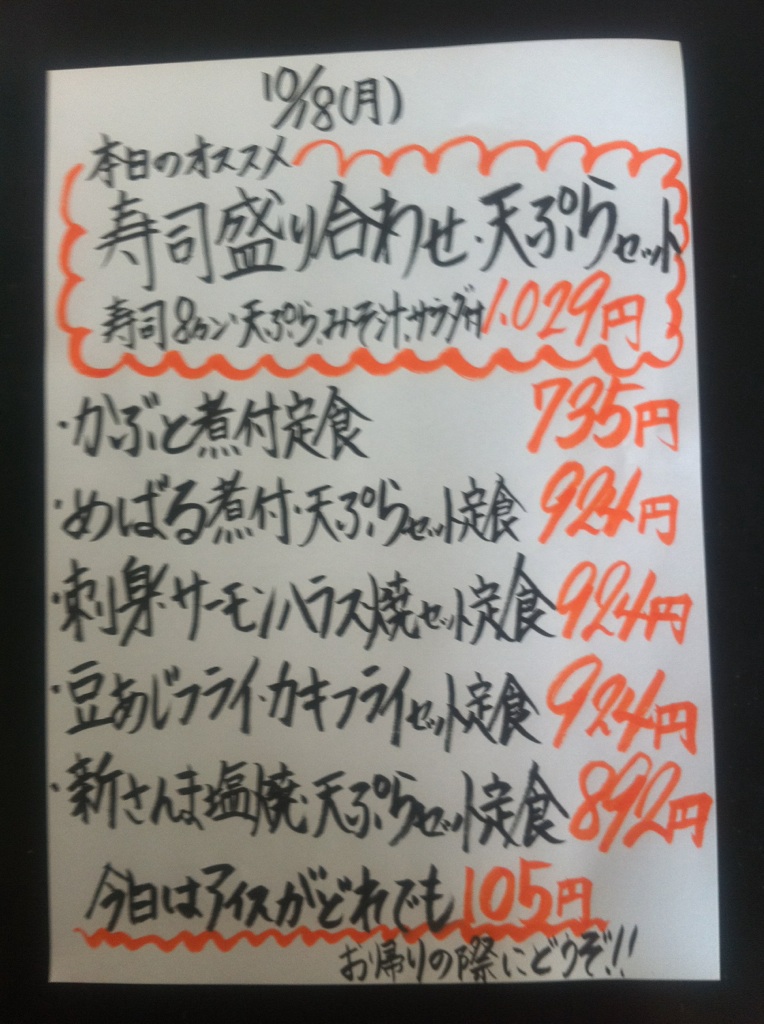 10/18(月)
本日のオススメ
寿司盛り合わせ・天ぷらセット
寿司8カン・天ぷら、みそ汁、サラダ付 1,029円
・かぶと煮付定食 735円
・めばる煮付・天ぷらセット定食 924円
・刺身・サーモンハラス焼セット定食 924円
・豆あじフライ・カキフライセット定食 924円
・新さんま塩焼・天ぷらセット定食 892円
今日はアイスがどれでも105円
お帰りの際にどうぞ!!